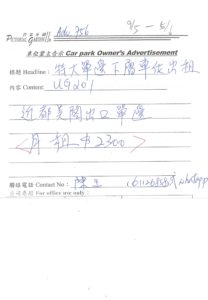 Adv 756
9/5 — 5/6
PICTORIAL GARDEN
車位業主告示 Car park Owner's Advertisement
標題 Headline: 特大單邊下層車位出租
內容 Content: UG201
近都美閣出口單邊
<月租 $2300>
聯絡電話 Contact No: 陳生
whatsapp
公司專用 For office use only: